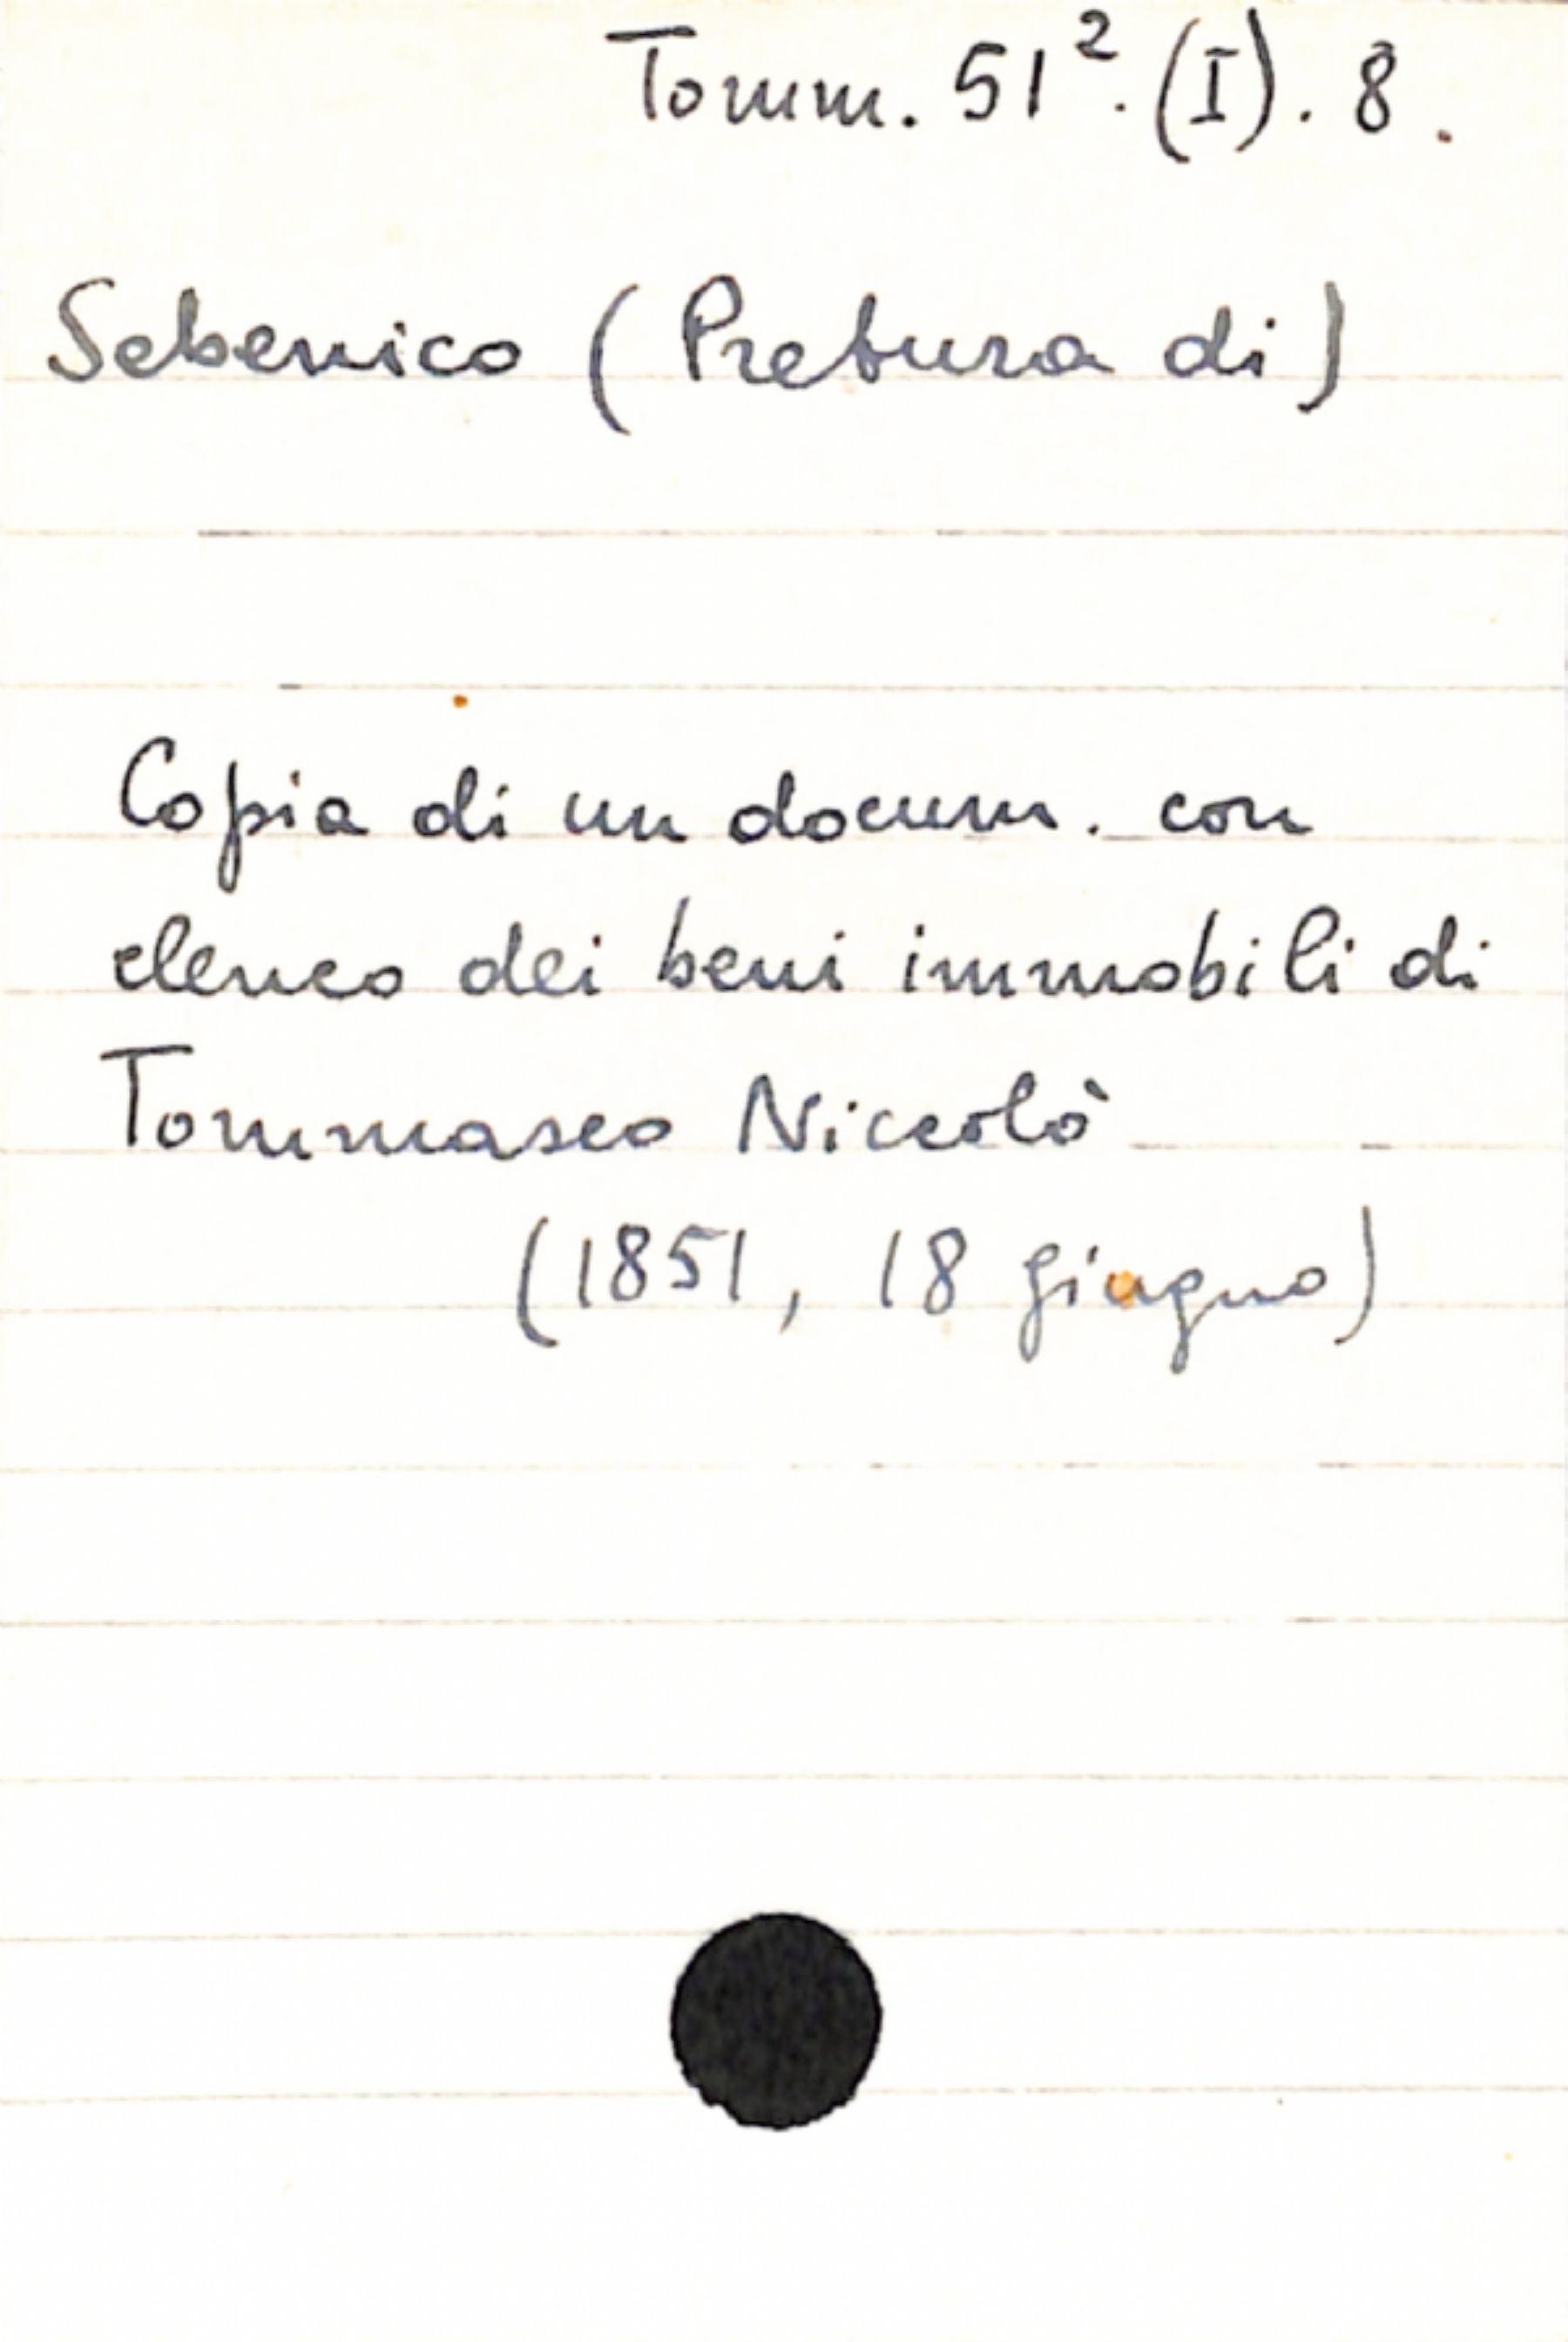 Tomm. 51². (I). 8.
Sebenico (Pretura di)
Copia di un docum. con
elenco dei beni immobili di
Tommaseo Niccolò
(1851, 18 giugno)